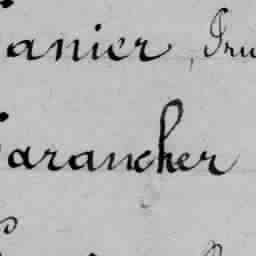 anier, Tru
arancher